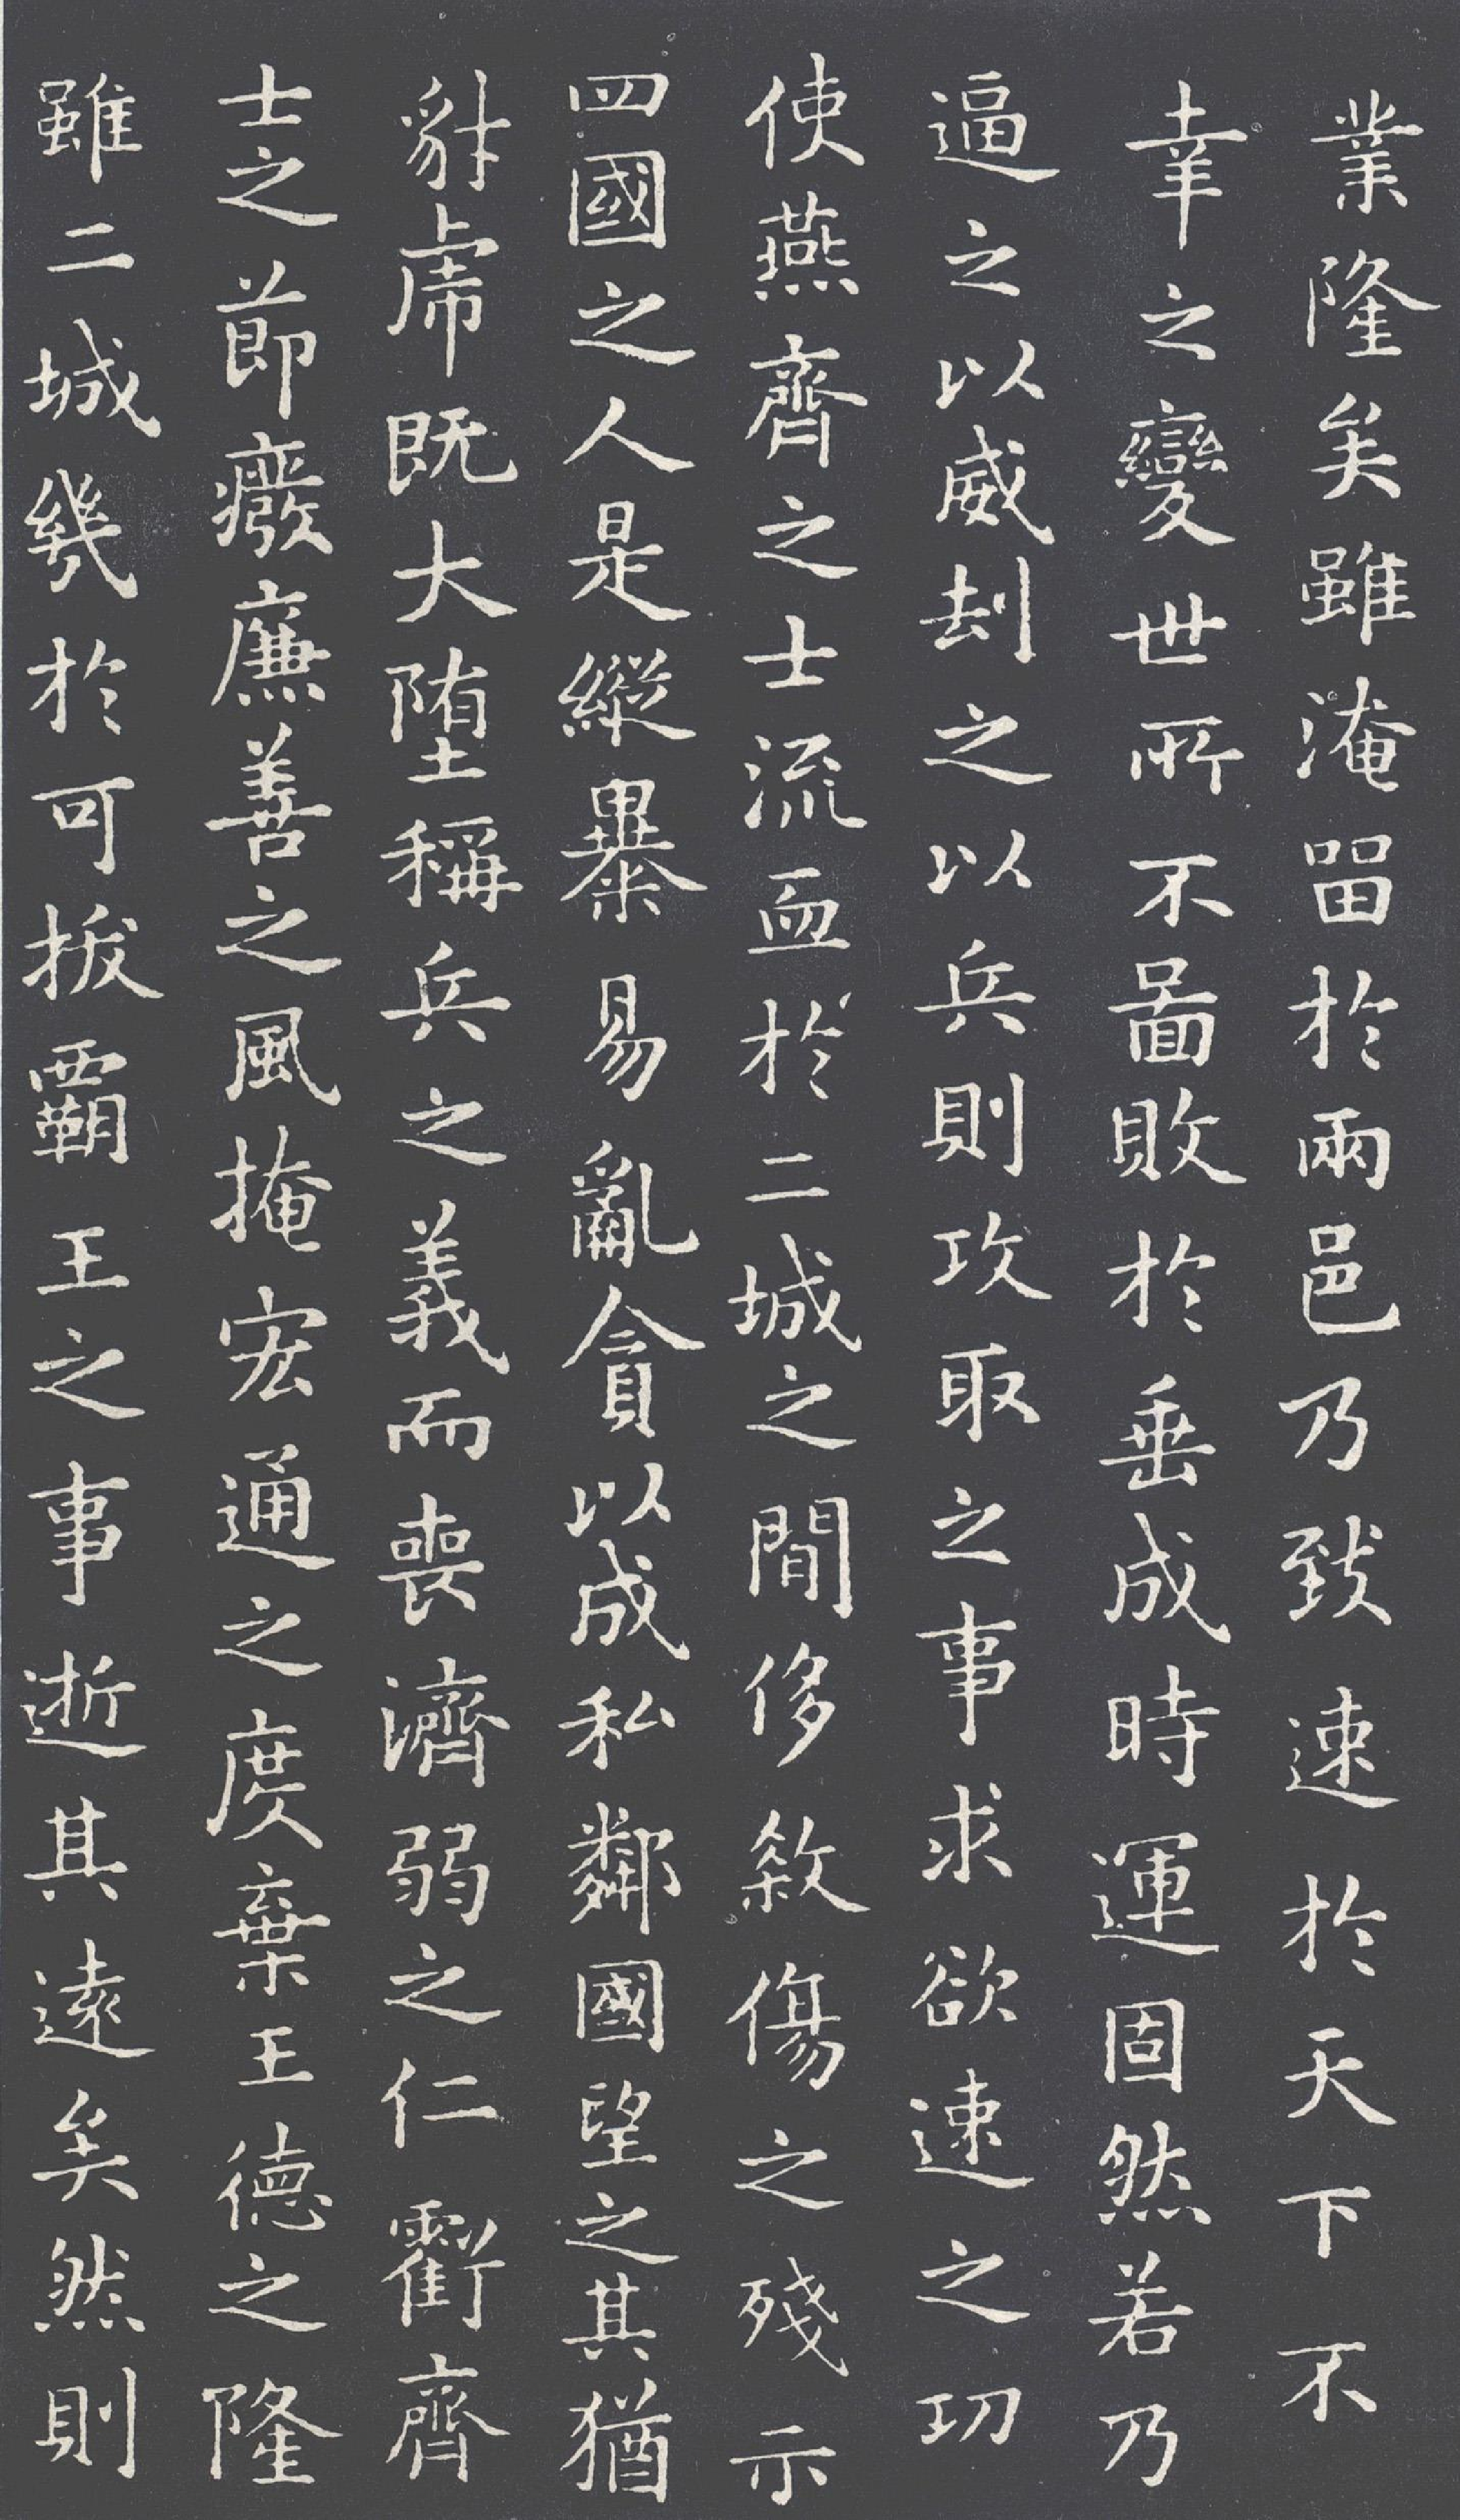 業隆矣雖淹留於兩邑乃致速於天下不
幸之變世所不圖敗於垂成時運固然若乃
逼之以威刦之以兵則攻取之事求欲速之功
使燕齊之士流血於二城之間侈殺傷之殘示
四國之人是縱暴易亂貪以成私鄰國望之其猶
豺虎既大墮稱兵之義而喪濟弱之仁虧齊
士之節廢廉善之風掩宏通之度棄王德之隆
雖二城幾於可拔霸王之事逝其遠矣然則